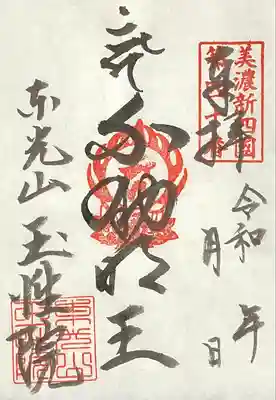 美濃新四国
奉拝
令和 年
月 日
不動明王
東光山 玉性院